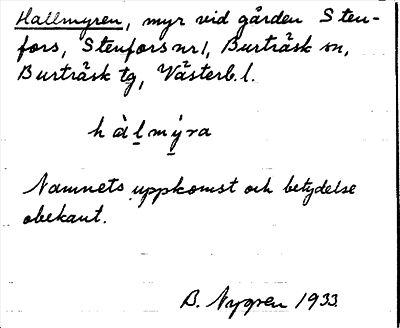 Hallmyren, myr vid gården Sten-
fors, Stenfors nr 1, Burträsk sn,
Burträsk tg, Västerb. l.
hàlmýra
Namnets uppkomst och betydelse
obekant.
B. Nygren 1933.